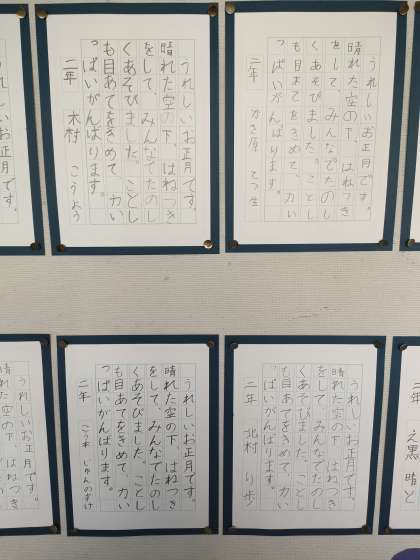 うれしいお正月です。
晴れた空の下、はねつき
をして、みんなでたのし
くあそびました。ことし
も目あてをきめて、力い
っぱいがんばります。
二年 かさ原 てつ生
うれしいお正月です。
晴れた空の下、はねつき
をして、みんなでたのし
くあそびました。ことし
も目あてをきめて、力い
っぱいがんばります。
二年 木村 こうよう
れしいお正月です。
二年 え黒 晴と
うれしいお正月です。
晴れた空の下、はねつき
をして、みんなでたのし
くあそびました。ことし
も目あてをきめて、力い
っぱいがんばります。
二年 北村 り歩
うれしいお正月です。
晴れた空の下、はねつき
をして、みんなでたのし
くあそびました。ことし
も目あてをきめて、力い
っぱいがんばります。
二年 じゅんのすけ
うれしいお正月です。
晴れた空の下、はねつき